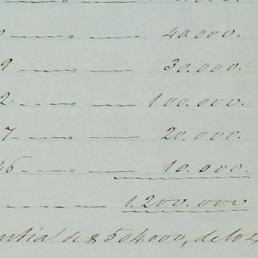 40.000.
9 30.000.
2 100.000
7 20.000
46 10.000.
1.200.000
de $504.000,